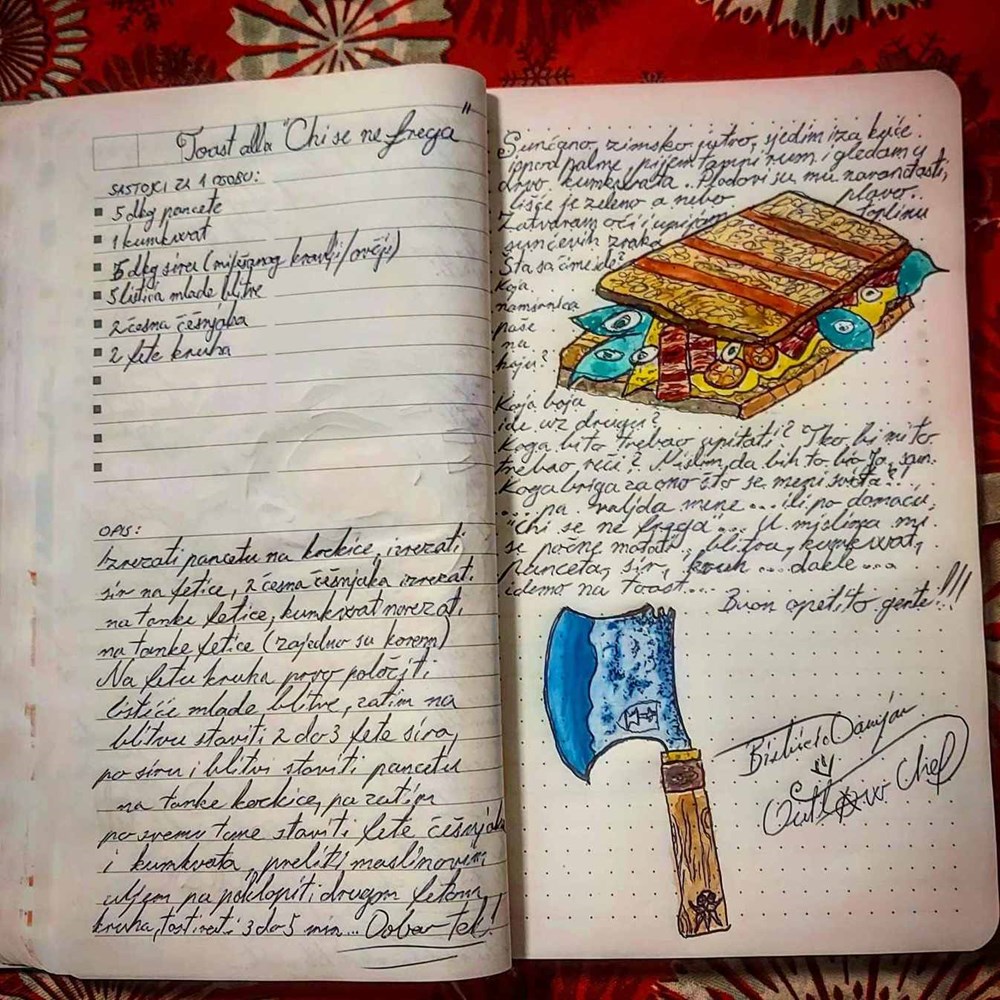 Toast alla "Chi se ne frega"
SASTOJCI ZA 1 OSOBU:
5 dkg pancete
1 kumkvat
5 dkg sira (miješanog kravlji/ovčji)
5 listića mlade blitve
2 česna češnjaka
2 fete kruha
OPIS:
Izrezati pancetu na kockice, izrezati
sir na fetice, 2 česna češnjaka izrezati
na tanke fetice, kumkvat narezati
na tanke fetice (zajedno sa korom)
Na fetu kruha prvo položiti
listiće mlade blitve, zatim na
blitvu staviti 2 do 3 fete sira,
po siru i blitvi staviti pancetu
na tanke kockice, pa zatim
po svemu tome staviti fete češnjaka
i kumkvata, preliti maslinovim
uljem pa poklopiti drugom fetom
kruha, tostirati 3 do 5 min... Dobar tek!
Sunčano zimsko jutro, sjedim iza kuće
ispod palme, pijem tamni rum i gledam u
drvo kumkvata.. Plodovi su mu narančasti,
lišće je zeleno a nebo plavo..
Zatvaram oči i upijam toplinu
sunčevih zraka
Šta sa čime ide?
Koja
namirnica
paše
na
koju?
Koja boja
ide uz drugu?
Koga bi to trebao upitati? Tko bi mi to
trebao reći? Mislim, da bih to bio Ja, sam.
Koga briga za ono što se meni sviđa?!
... pa valjda mene... ili po domaću,
"Chi se ne frega"... U mislima mi
se počne motati, blitva, kumkvat,
panceta, sir, kruh... dakle...
idemo na toast...
Buon apetito gente!!!
Damjan
Outlaw Chef